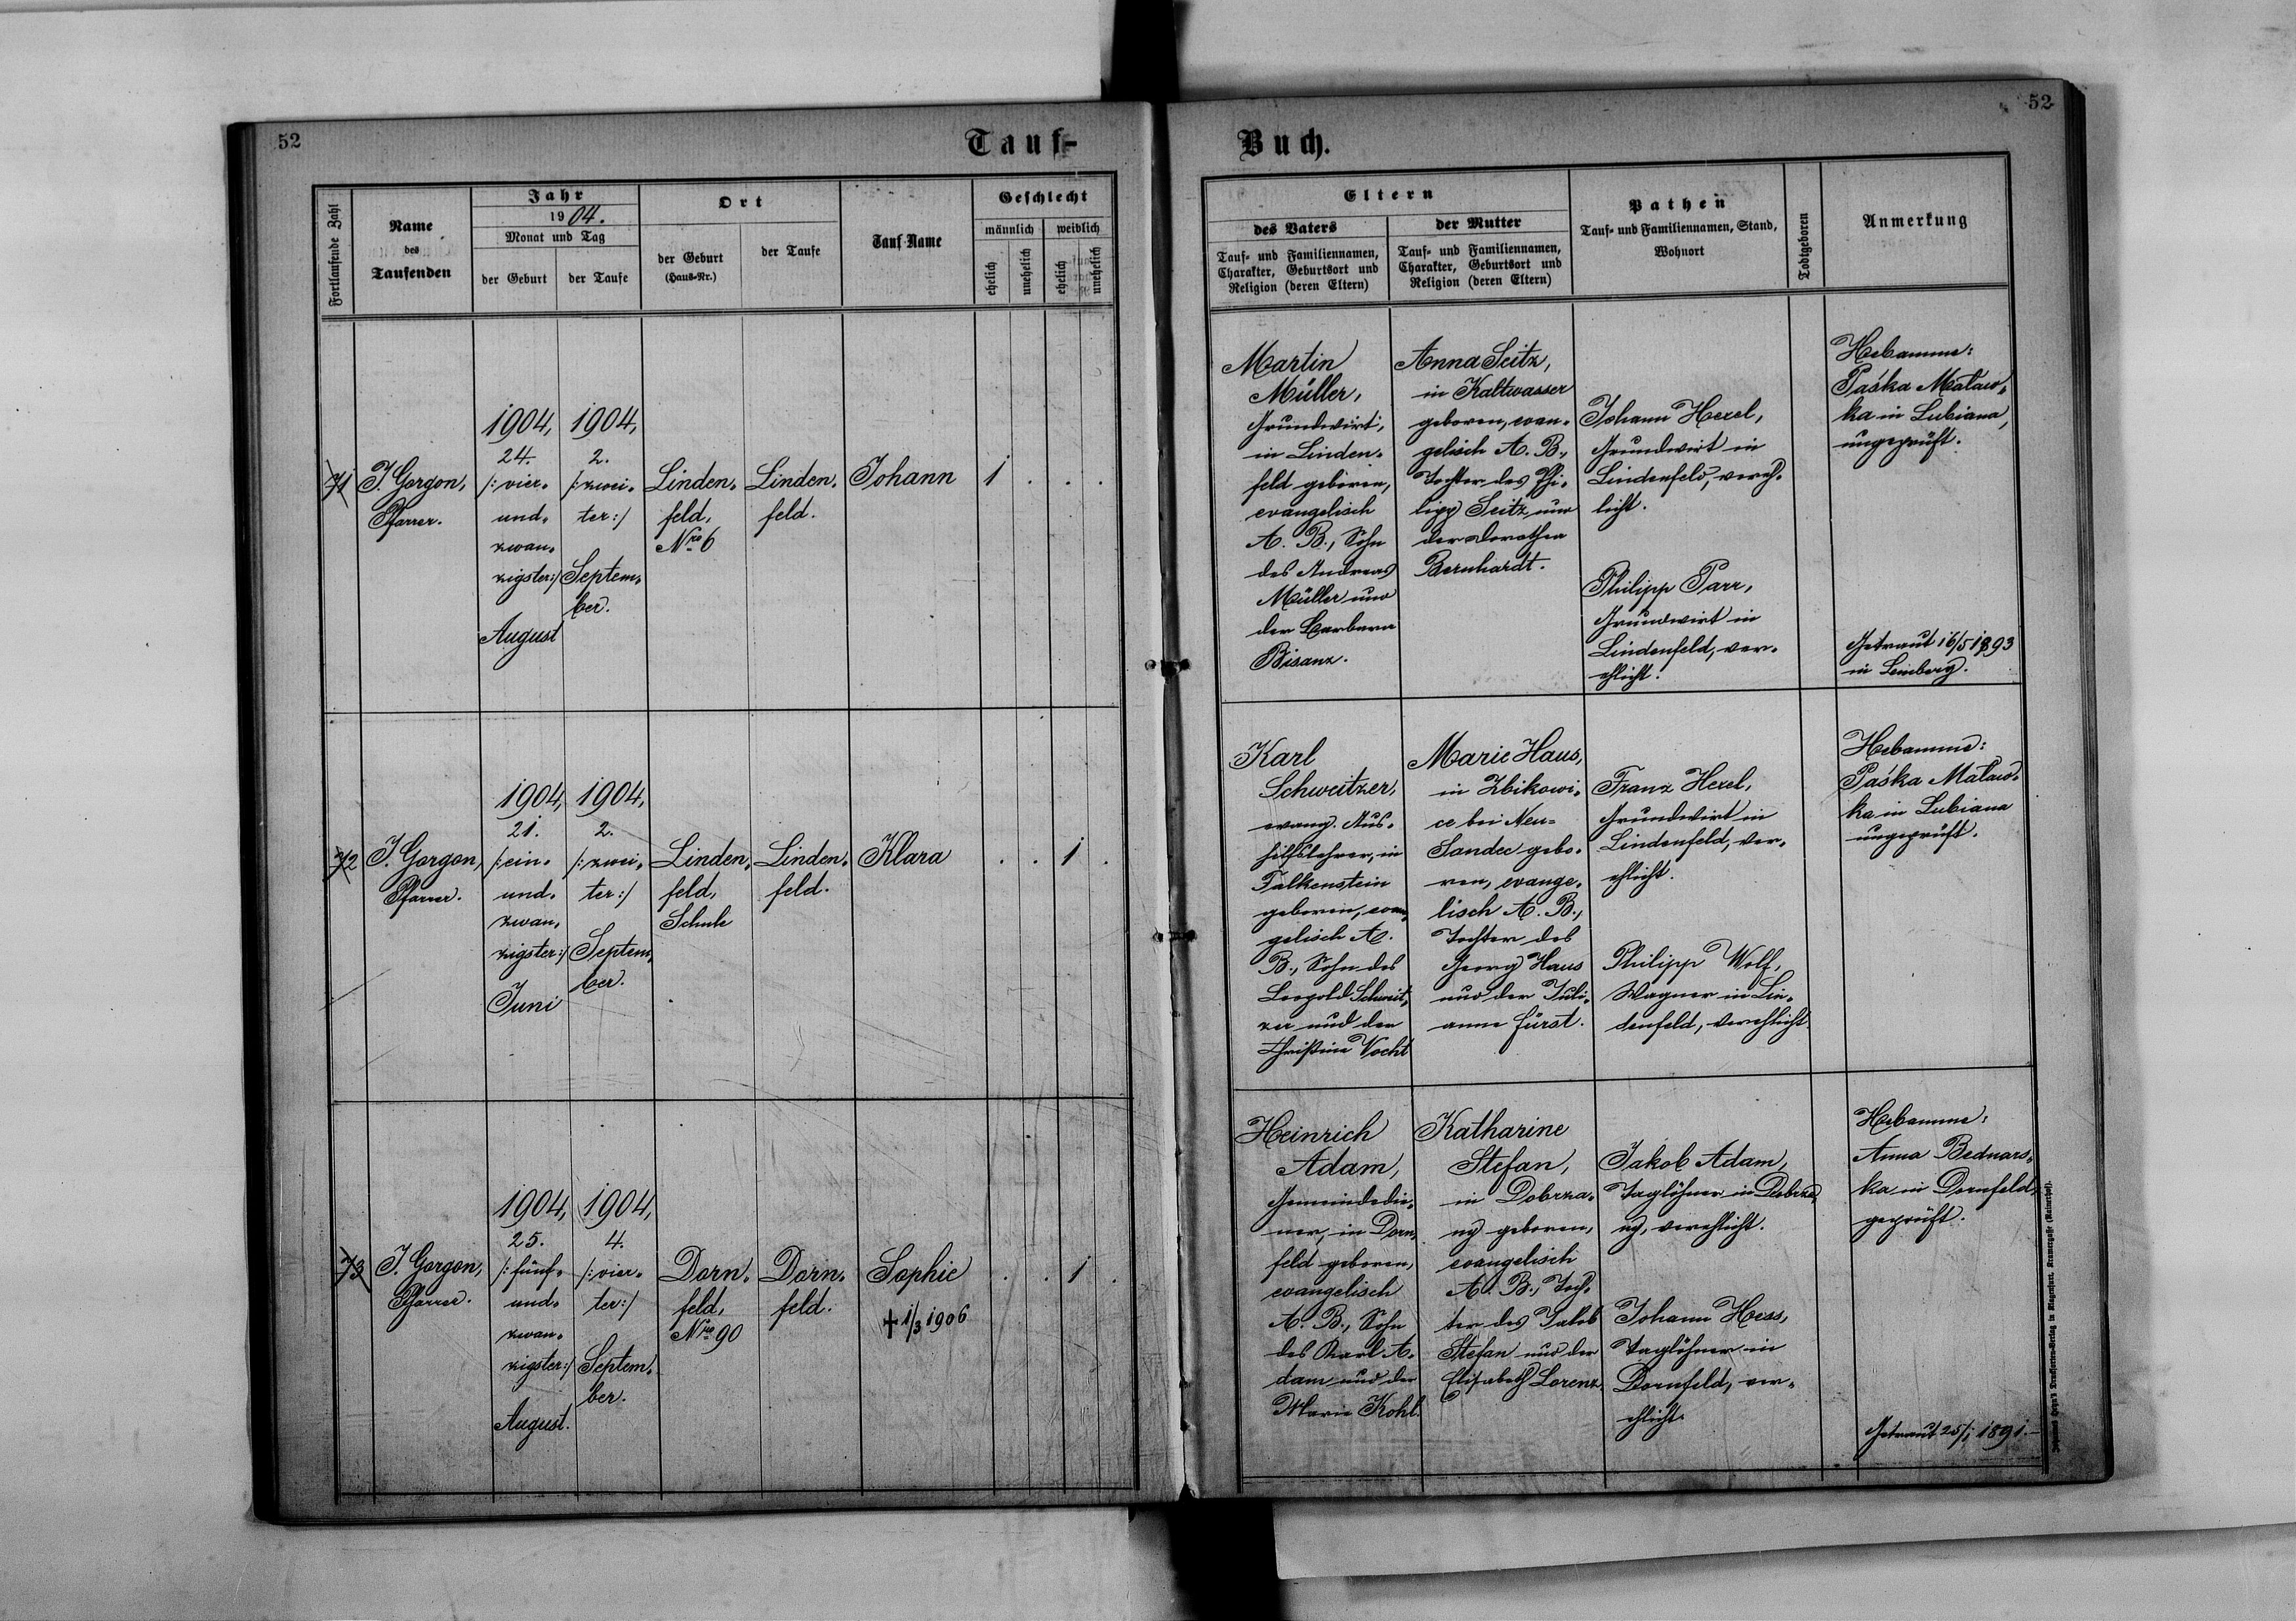 52
Tauf-
Buch.
52
Fortlaufende Zahl
Name
des
Taufenden
Jahr
1904.
Monat und Tag
der Geburt
der Taufe
Ort
der Geburt
(Haus-Nr.)
der Taufe
Tauf-Name
Geschlecht
männlich
weiblich
ehelich
unehelich
ehelich
unehelich
Eltern
des Vaters
Tauf- und Familiennamen,
Charakter, Geburtsort und
Religion (deren Eltern)
der Mutter
Tauf- und Familiennamen,
Charakter, Geburtsort und
Religion (deren Eltern)
Pathen
Tauf- und Familiennamen, Stand,
Wohnort
Todtgeboren
Anmerkung
71
J. Gorgon,
Pfarrer.
1904,
24.
/:vier-
und-
zwan-
zigster:/
August
1904,
2.
/:zwei-
ter:/
Septem-
ber.
Linden-
feld,
Nro 6
Linden-
feld.
Johann
1 . . .
Martin
Müller,
Grundwirt,
in Linden-
feld geboren,
evangelisch
A. B., Sohn
des Andreas
Müller und
der Barbara
Bisanz.
Anna Seitz,
in Kaltwasser
geboren, evan-
gelisch A. B.,
Tochter des Phi-
lipp Seitz und
der Dorothea
Bernhardt.
Johann Hexel,
Grundwirt in
Lindenfeld, vereh-
licht.
Philipp Parr,
Grundwirt in
Lindenfeld, ver-
ehlicht.
Hebamme:
Paśka Mataw-
ka in Lubiana,
ungeprüft.
Getraut 16/5 1893
in Lemberg.
72
J. Gorgon,
Pfarrer.
1904,
21.
/:ein-
und-
zwan-
zigster:/
Juni
1904,
2.
/:zwei-
ter:/
Septem-
ber.
Linden-
feld,
Schule
Linden-
feld.
Klara
. . 1 .
Karl
Schweitzer,
evang. Aus-
hilfslehrer, in
Falkenstein
geboren, evan-
gelisch A.
B., Sohn des
Leopold Schweit-
zer und der
Christine Vocht
Marie Haus,
in Zbikowi-
ce bei Neu-
Sandec gebo-
ren, evange-
lisch A. B.,
Tochter des
Georg Haus
und der Juli-
anne Fürst.
Franz Hexel,
Grundwirt in
Lindenfeld, ver-
ehlicht.
Philipp Wolf,
Wagner in Lin-
denfeld, verehlicht
Hebamme:
Paśka Mataw-
ka in Lubiana
ungeprüft.
73
J. Gorgon,
Pfarrer.
1904,
25.
/:fünf-
und-
zwan-
zigster:/
August.
1904,
4.
/:vier-
ter:/
Septem-
ber.
Dorn-
feld,
Nro 90
Dorn-
feld.
Sophie
† 1/3 1906
. . 1 .
Heinrich
Adam,
Gemeindedie-
ner, in Dorn-
feld geboren,
evangelisch
A. B., Sohn
des Karl A-
dam und der
Marie Kohl.
Katharine
Stefan,
in Dobrza-
ny geboren,
evangelisch
A. B., Toch-
ter des Jakob
Stefan und der
Elisabeth Lorenz.
Jakob Adam,
Taglöhner in Dobrza-
ny, verehlicht.
Johann Hess,
Taglöhner in
Dornfeld, ver-
ehlicht.
Hebamme:
Anna Bednars-
ka in Dornfeld,
geprüft.
Getraut 25/1 1891.